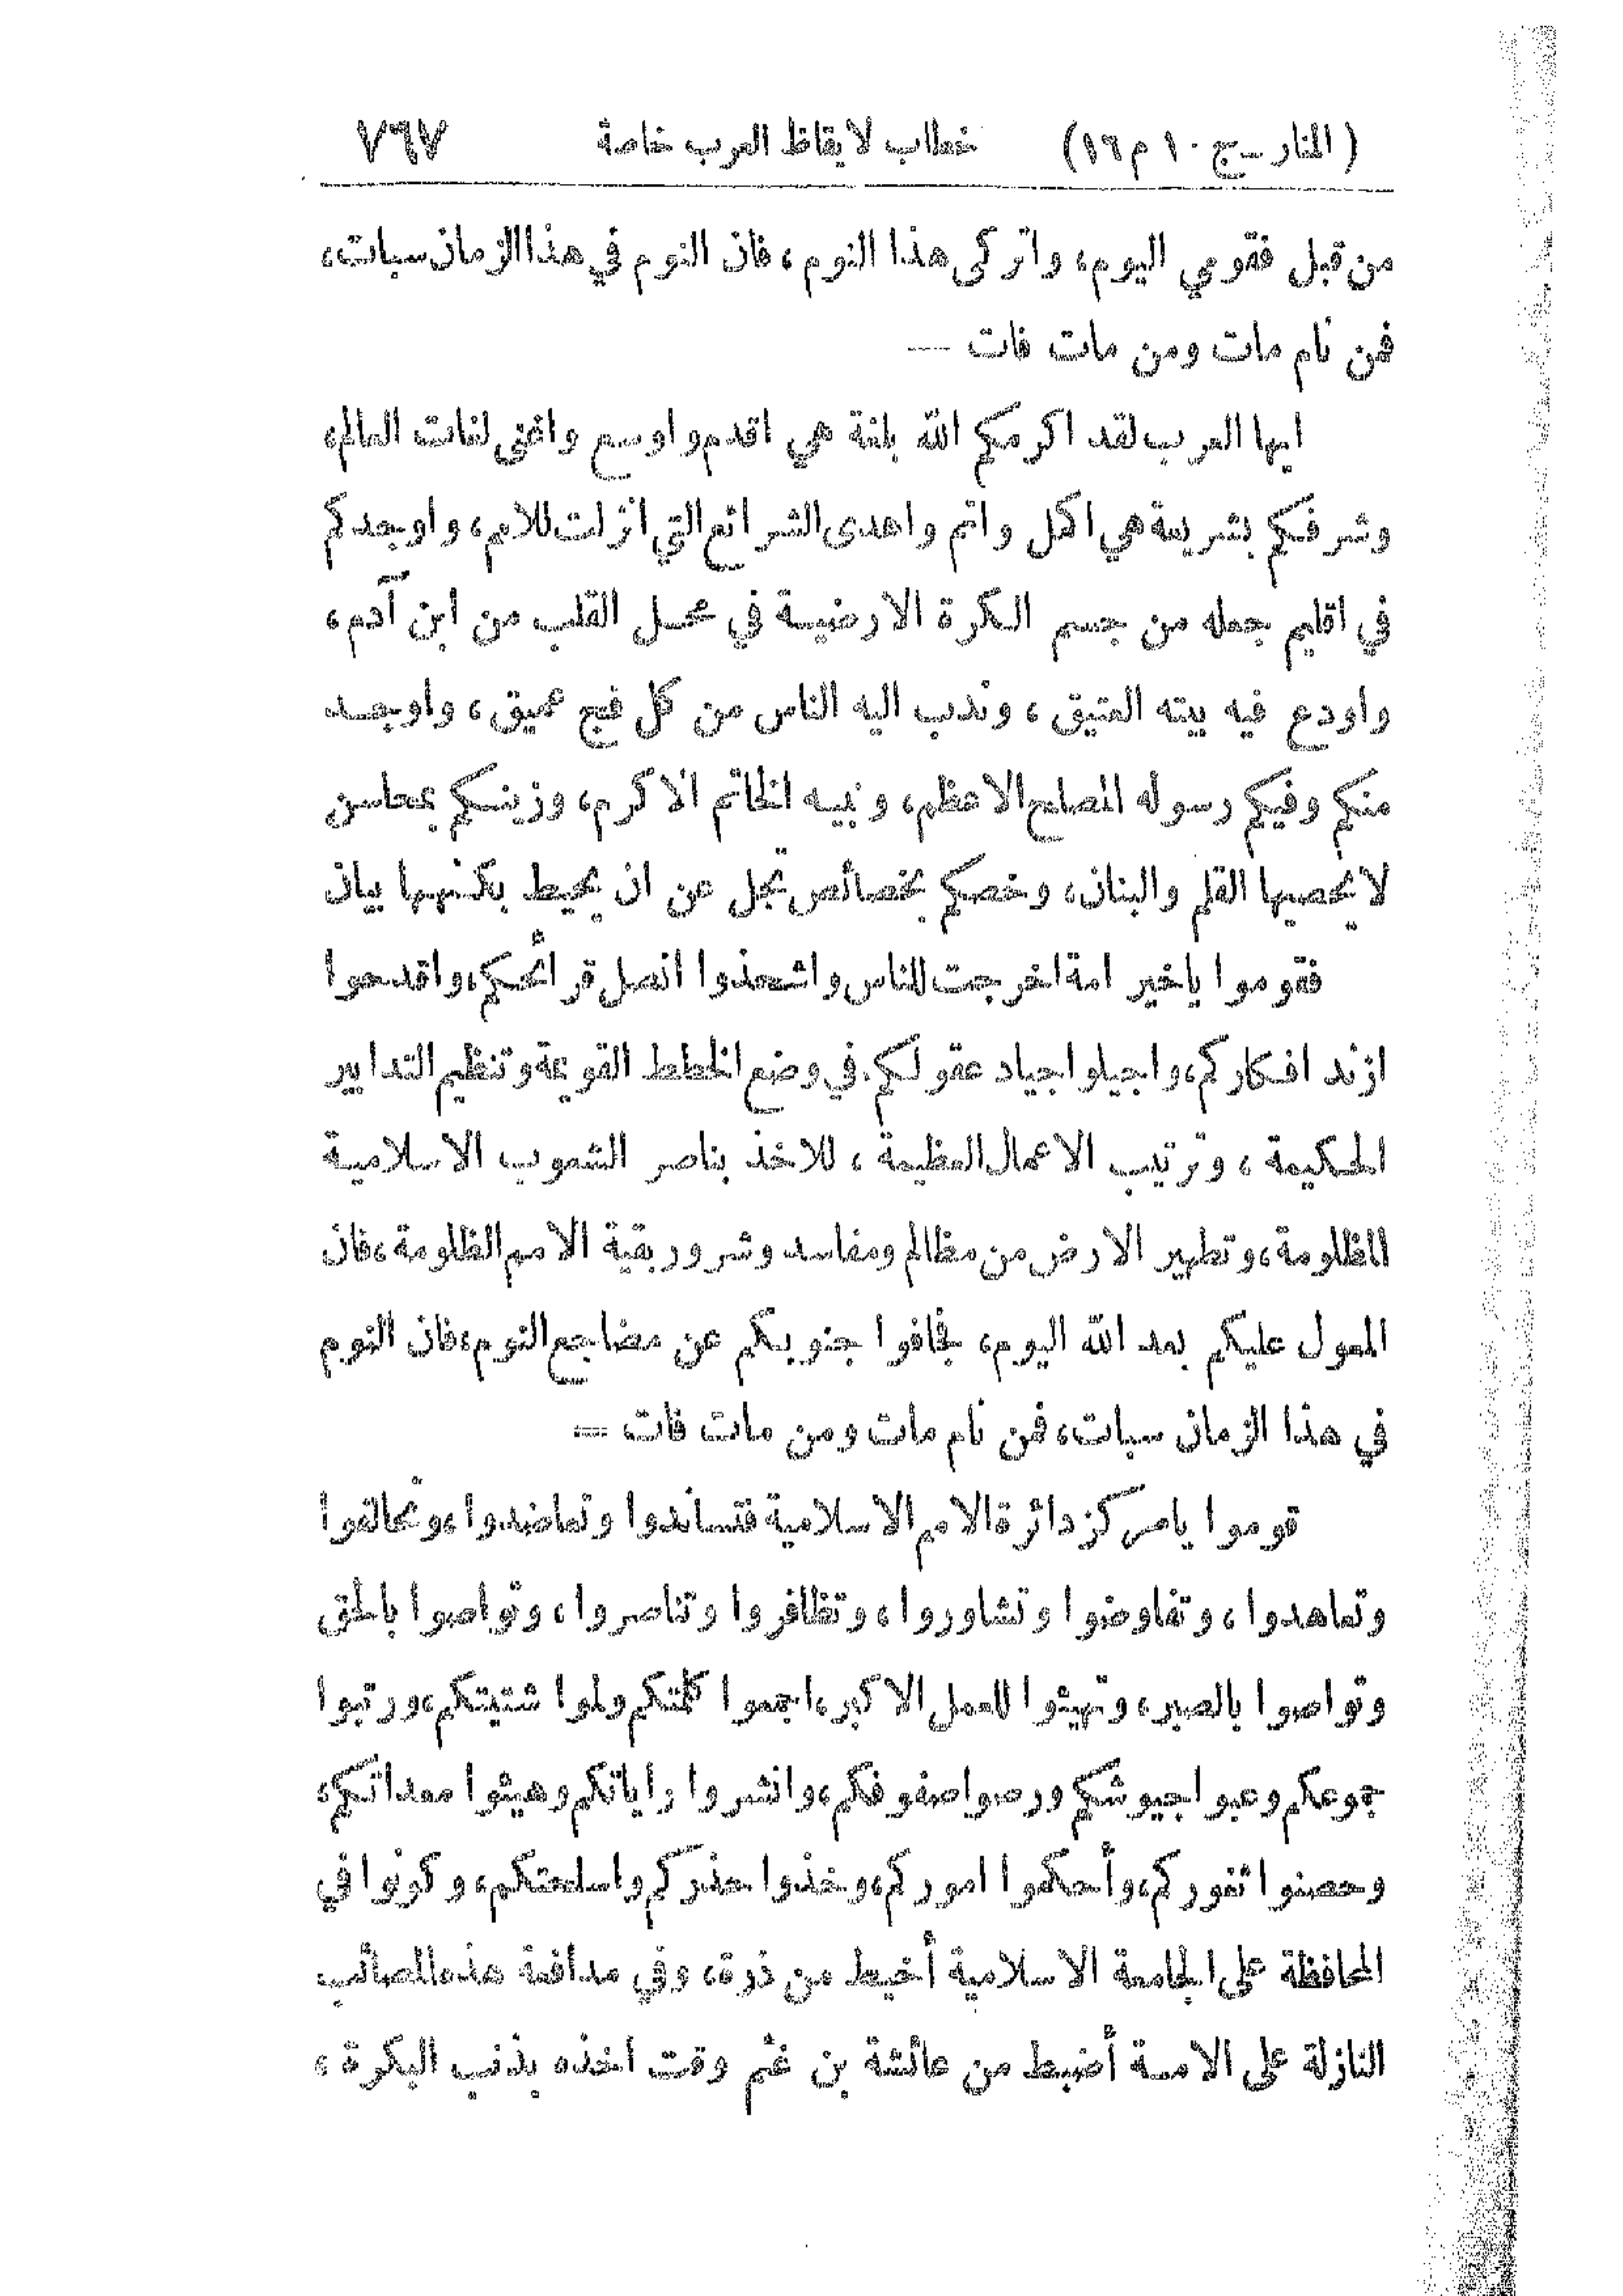 (المنار ـ ج ١٠ م ١٦) خطاب لايقاظ العرب خاصة ٧٦٧
من قبل فقومي اليوم، واتركى هذا النوم، فان النوم في هذا الزمان سبات،
فمن نام مات ومن مات فات —
ايها العرب لقد اكرمكم الله بلغة هي اقدم واوسع واغنى لغات العالم،
وشرفكم بشريعة هي اكمل واتم واهدى الشرائع التي انزلت للامم، واوجدكم
في اقليم جعله من جسم الكرة الارضية في محل القلب من ابن آدم،
واودع فيه بيته العتيق، وندب اليه الناس من كل فج عميق، واوجد
منكم وفيكم رسوله المصلح الاعظم، ونبيه الخاتم الاكرم، وزينكم بمحاسن
لا يحصيها القلم والبنان، وخصكم بخصائص تجل عن ان يحيط بكنهها بيان
فقوموا ياخير امة اخرجت للناس واشحذوا انصل قرائحكم، واقدحوا
ازند افكاركم، واجيلوا جياد عقولكم. في وضع الخطط القويمة وتنظيم التدابير
الحكيمة، وترتيب الاعمال العظيمة، للاخذ بناصر الشعوب الاسلامية
المظلومة، وتطهير الارض من مظالم ومفاسد وشرور بقية الامم الظلومة، فان
المعول عليكم بعد الله اليوم، فجافوا جنوبكم عن مضاجع النوم، فان النوم
في هذا الزمان سبات، فمن نام مات ومن مات فات =
قوموا يامركز دائرة الامم الاسلامية فتساندوا وتعاضدوا، وتحالفوا
وتعاهدوا، وتفاوضوا وتشاوروا، وتظافروا وتناصروا، وتواصوا بالحق
وتواصوا بالصبر، وتهيئوا للعمل الاكبر، اجمعوا كلمتكم ولموا شتيتكم، ورتبوا
جموعكم وعبوا جيوشكم ورصوا صفوفكم، وانشروا راياتكم وهيئوا معداتكم،
وحصنوا ثغوركم، وأحكموا اموركم، وخذوا حذركم واسلحتكم، وكونوا في
المحافظة على الجامعة الاسلامية أحيط من ذرة، وفي مدافعة هذه المصائب
النازلة على الامة أضبط من عائشة بن غنم وقت اخذه بذنب البكرة،